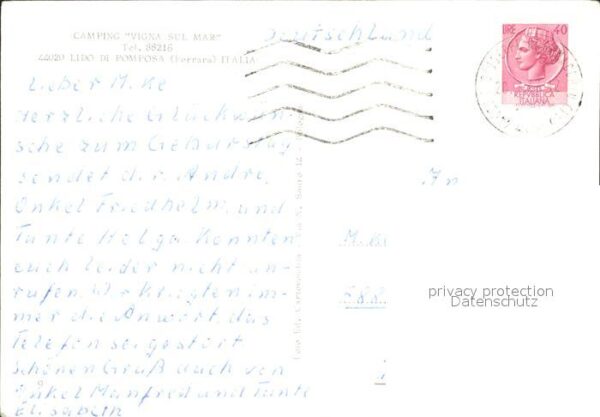 CAMPING "VIGNA SUL MAR"
Tel. 88216
44020 LIDO DI POMPOSA (Ferrara) ITALIA
Deutschland
LIRE 40
REPVBBLICA
ITALIANA
Lieber Mike
Herzliche Glückwün-
sche zum Geburtstag
sendet dir Andre,
Onkel Friedhelm und
Tante Helga. Konnten
euch leider nicht an-
rufen. Wir kriegten im-
mer die Antwort, das
Telefon sei gestört
Schönen Gruß auch von
Onkel Manfred und Tante
Elisabeth
An
privacy protection
Datenschutz